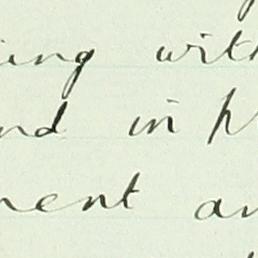 ing with
nd in p
ment an